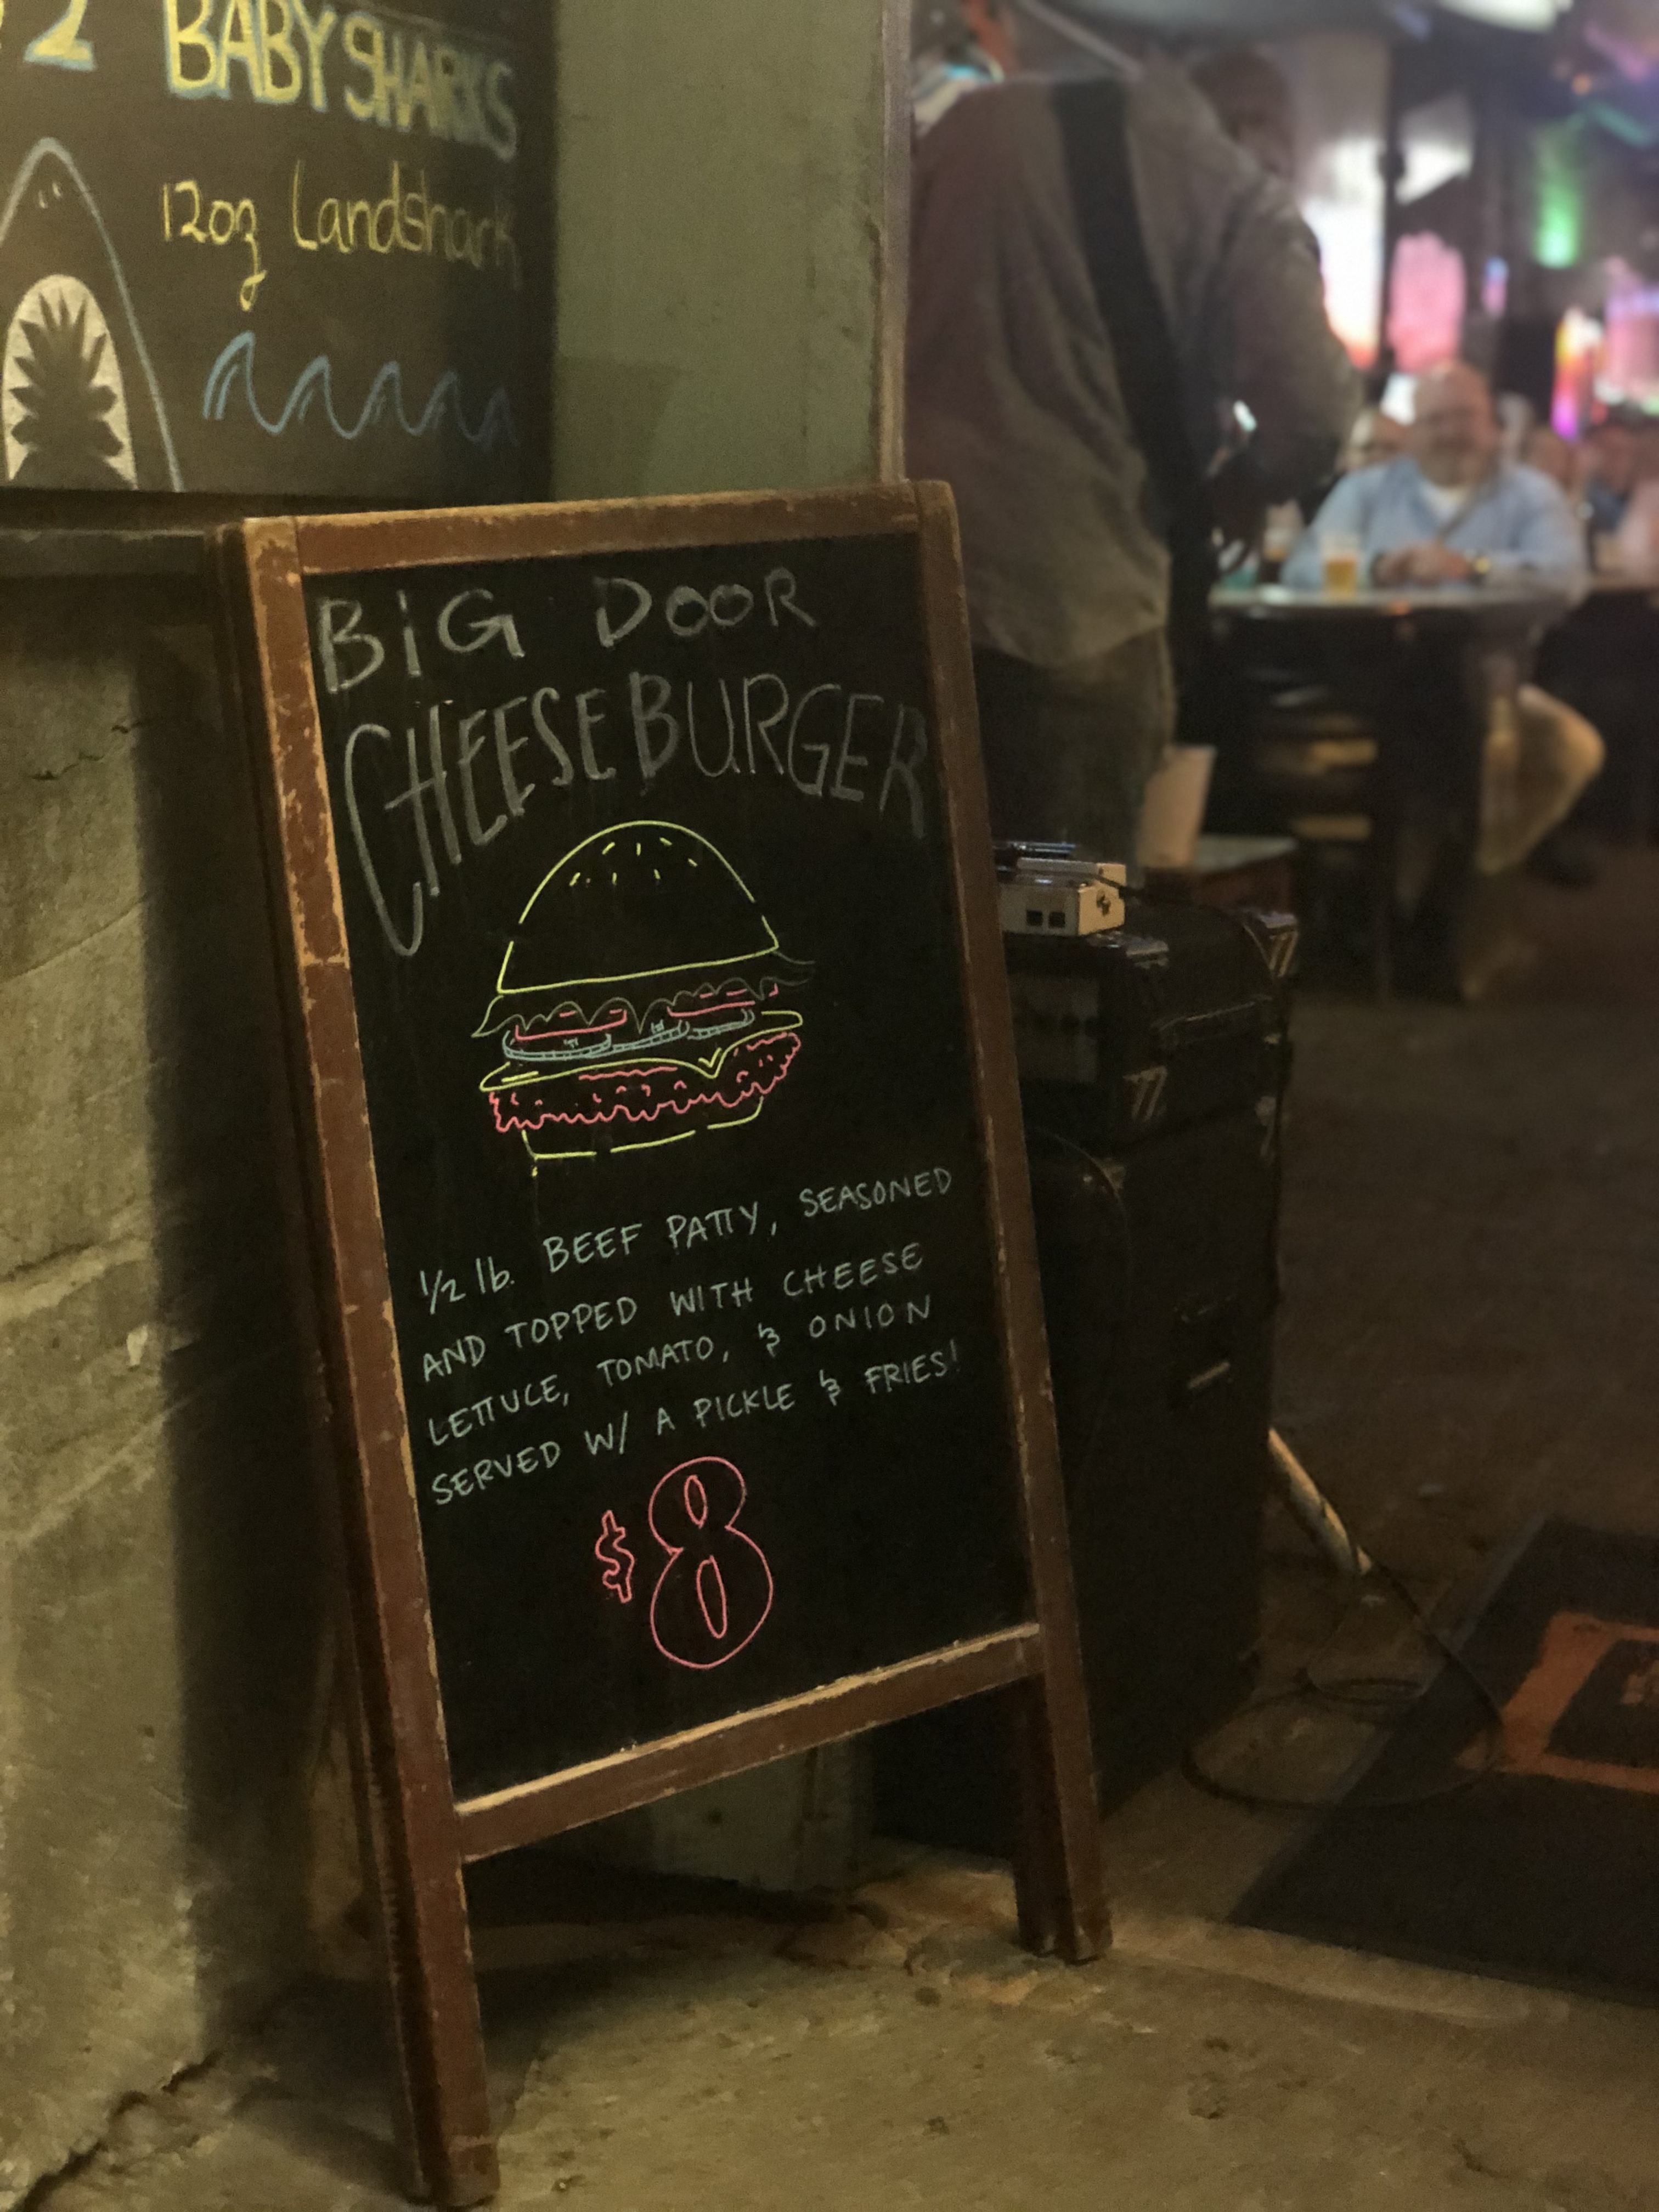 2 BABY SHARKS
12oz Landshark
BiG DOOR
CHEESEBURGER
1/2 lb. BEEF PATTY, SEASONED
AND TOPPED WITH CHEESE
LETTUCE, TOMATO, & ONION
SERVED W/ A PICKLE & FRIES!
$8